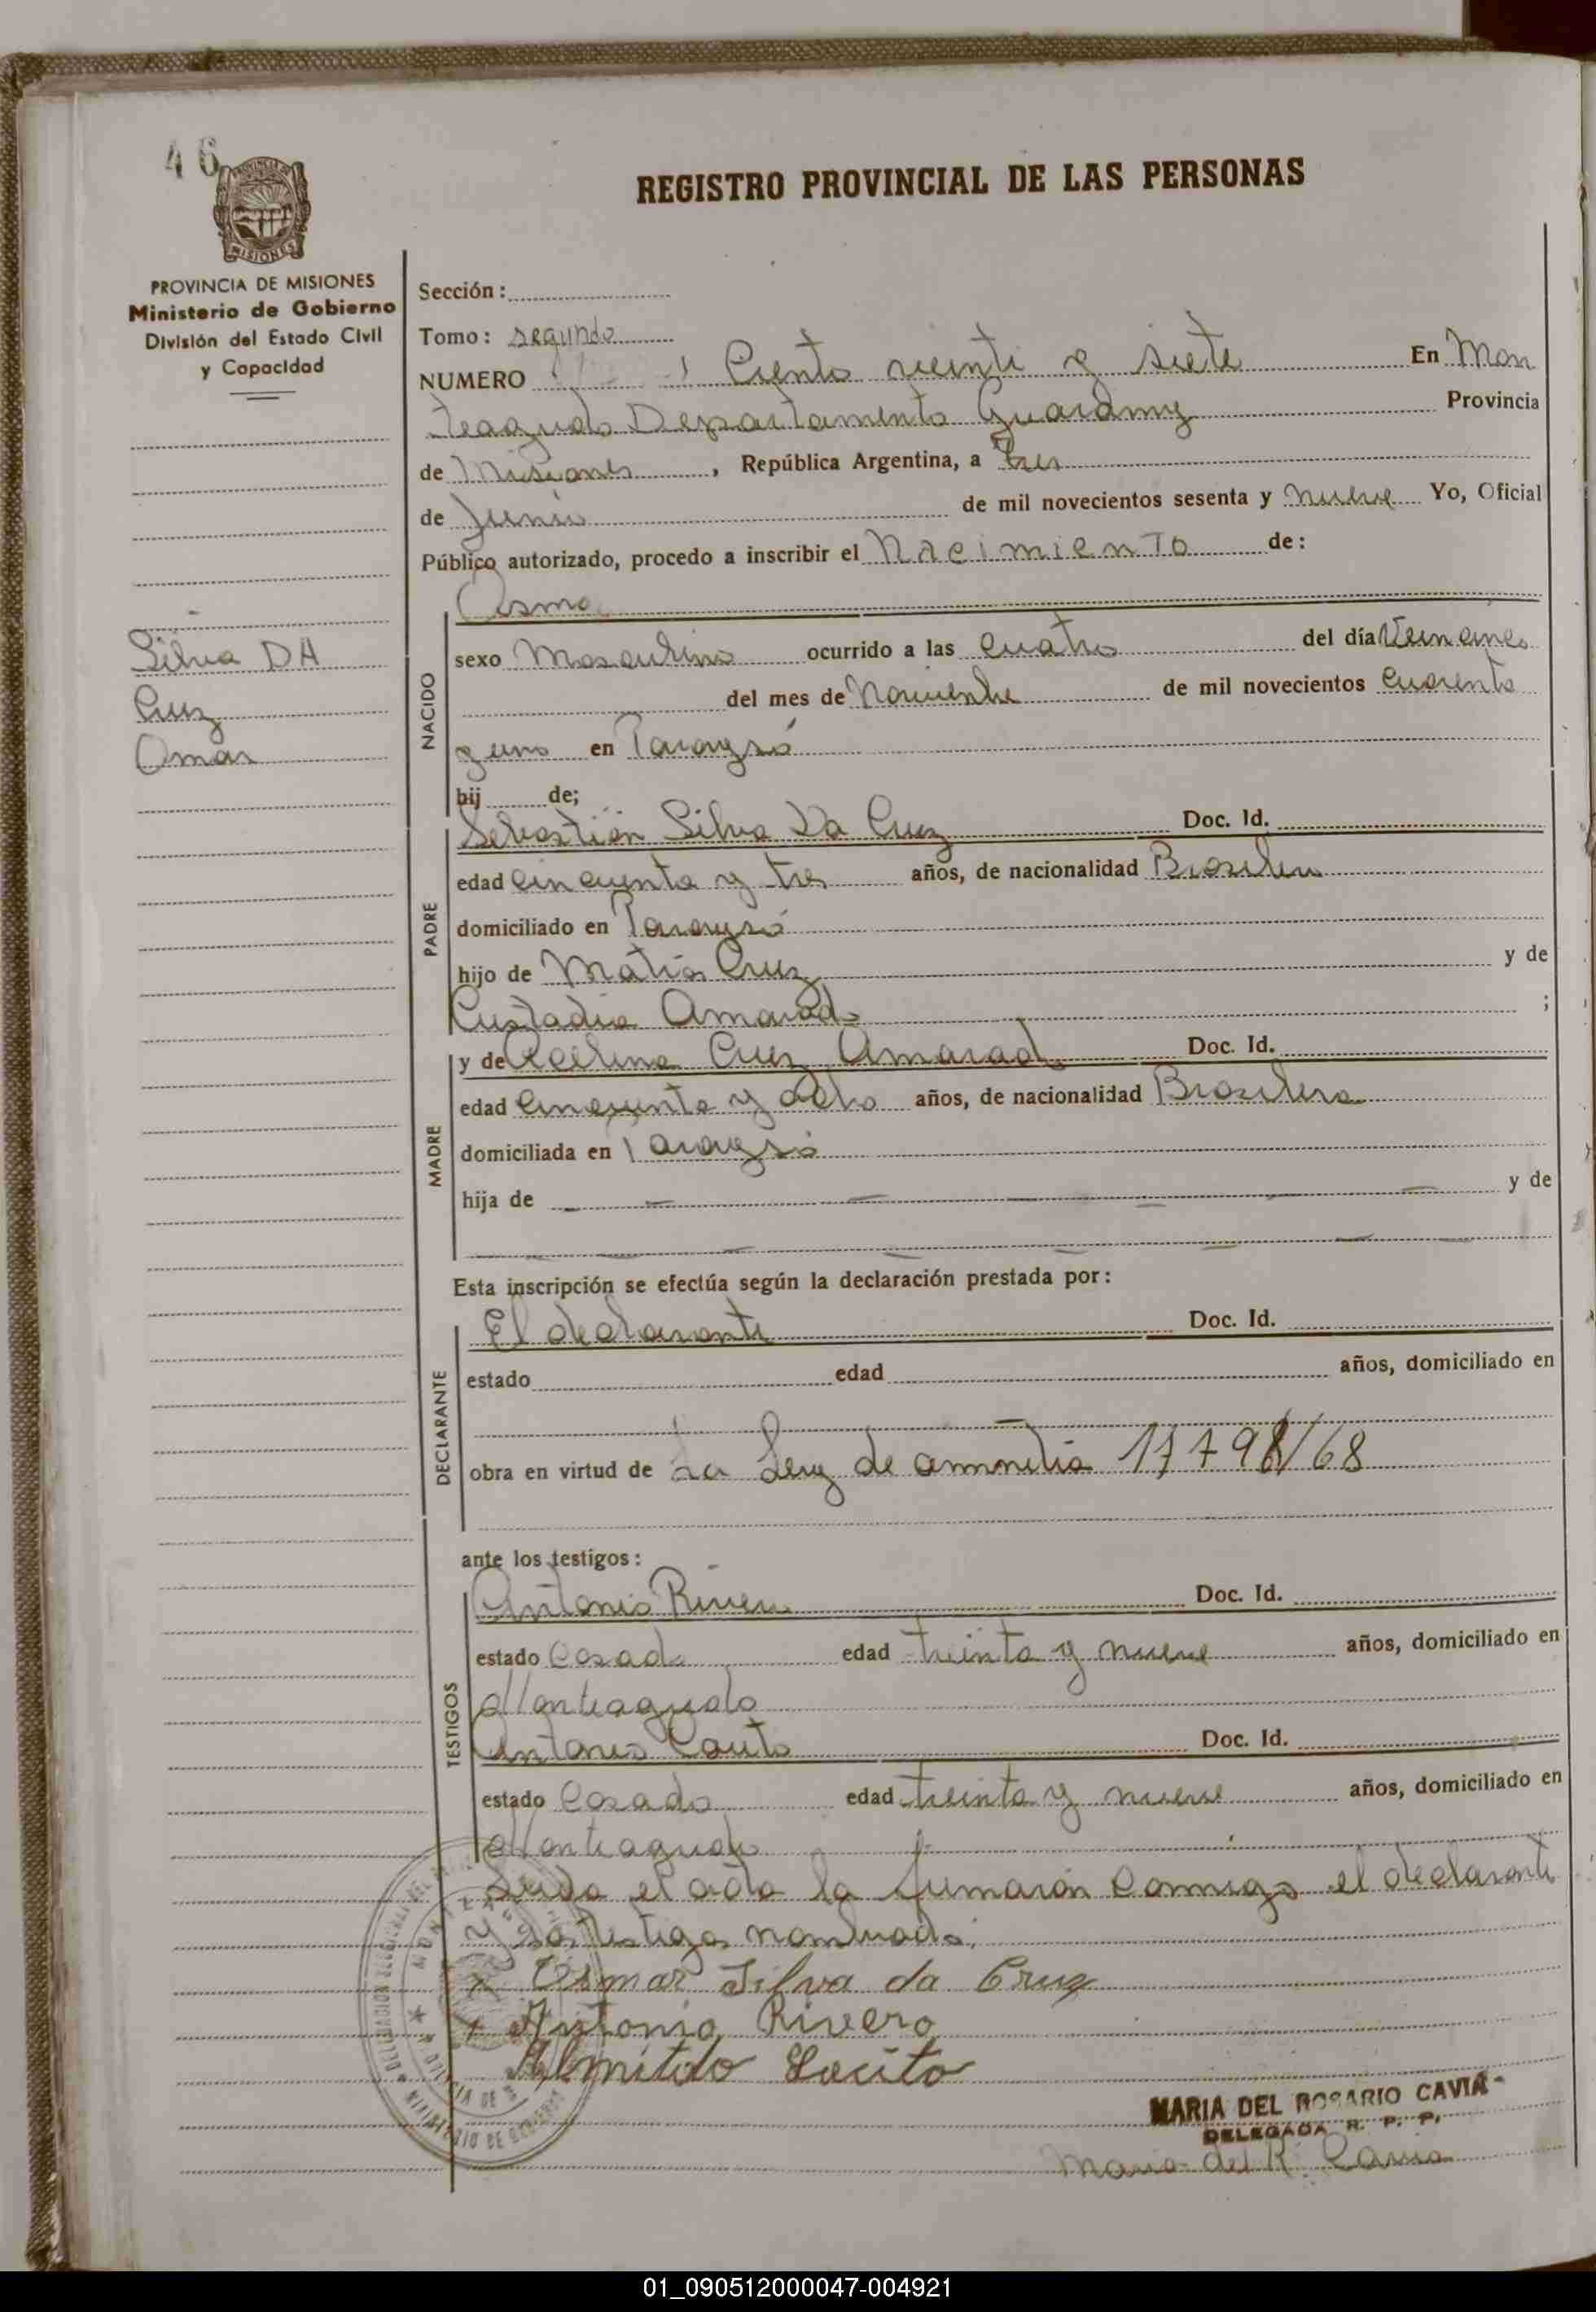 46
PROVINCIA DE
MISIONES
REGISTRO PROVINCIAL DE LAS PERSONAS
PROVINCIA DE MISIONES
Ministerio de Gobierno
División del Estado Civil
y Capacidad
Silva DA
Cruz
Omar
Sección:
Tomo: segundo
NUMERO Ciento veinti y siete En Mon
teagudo Departamento Guarany Provincia
de Misiones, República Argentina, a tres
de Junio de mil novecientos sesenta y nueve Yo, Oficial
Público autorizado, procedo a inscribir el Nacimiento de:
NACIDO
sexo Masculino ocurrido a las cuatro del día Veincinco
del mes de Noviembre de mil novecientos cuarenta
y uno en Parayso
hij de;
PADRE
Sebastián Silva Da Cruz Doc. Id.
edad cincuenta y tres años, de nacionalidad Brasilera
domiciliado en Parayso
hijo de Matias Cruz y de
Custadia Amarado ;
MADRE
y de Cruz Amarado Doc. Id.
edad cincuenta y ocho años, de nacionalidad Brasilera
domiciliada en Parayso
hija de y de
Esta inscripción se efectúa según la declaración prestada por:
DECLARANTE
El declarante Doc. Id.
estado edad años, domiciliado en
obra en virtud de La Ley de amnitia 17798/68
ante los testigos:
TESTIGOS
Antonio Rivero Doc. Id.
estado Casado edad treinta y nueve años, domiciliado en
Monteagudo
Antonio Couto Doc. Id.
estado Casado edad treinta y nueve años, domiciliado en
Monteagudo
Leida el acta la firmaron conmigo el declarante
y los testigos nombrados.
x Osmar Silva da Cruz
x Antonio Rivero
MINISTERIO DE GOBIERNO
MARIA DEL ROSARIO CAVIA
DELEGADA R. P. P.
Maria del R. Cavia
01_090512000047-004921